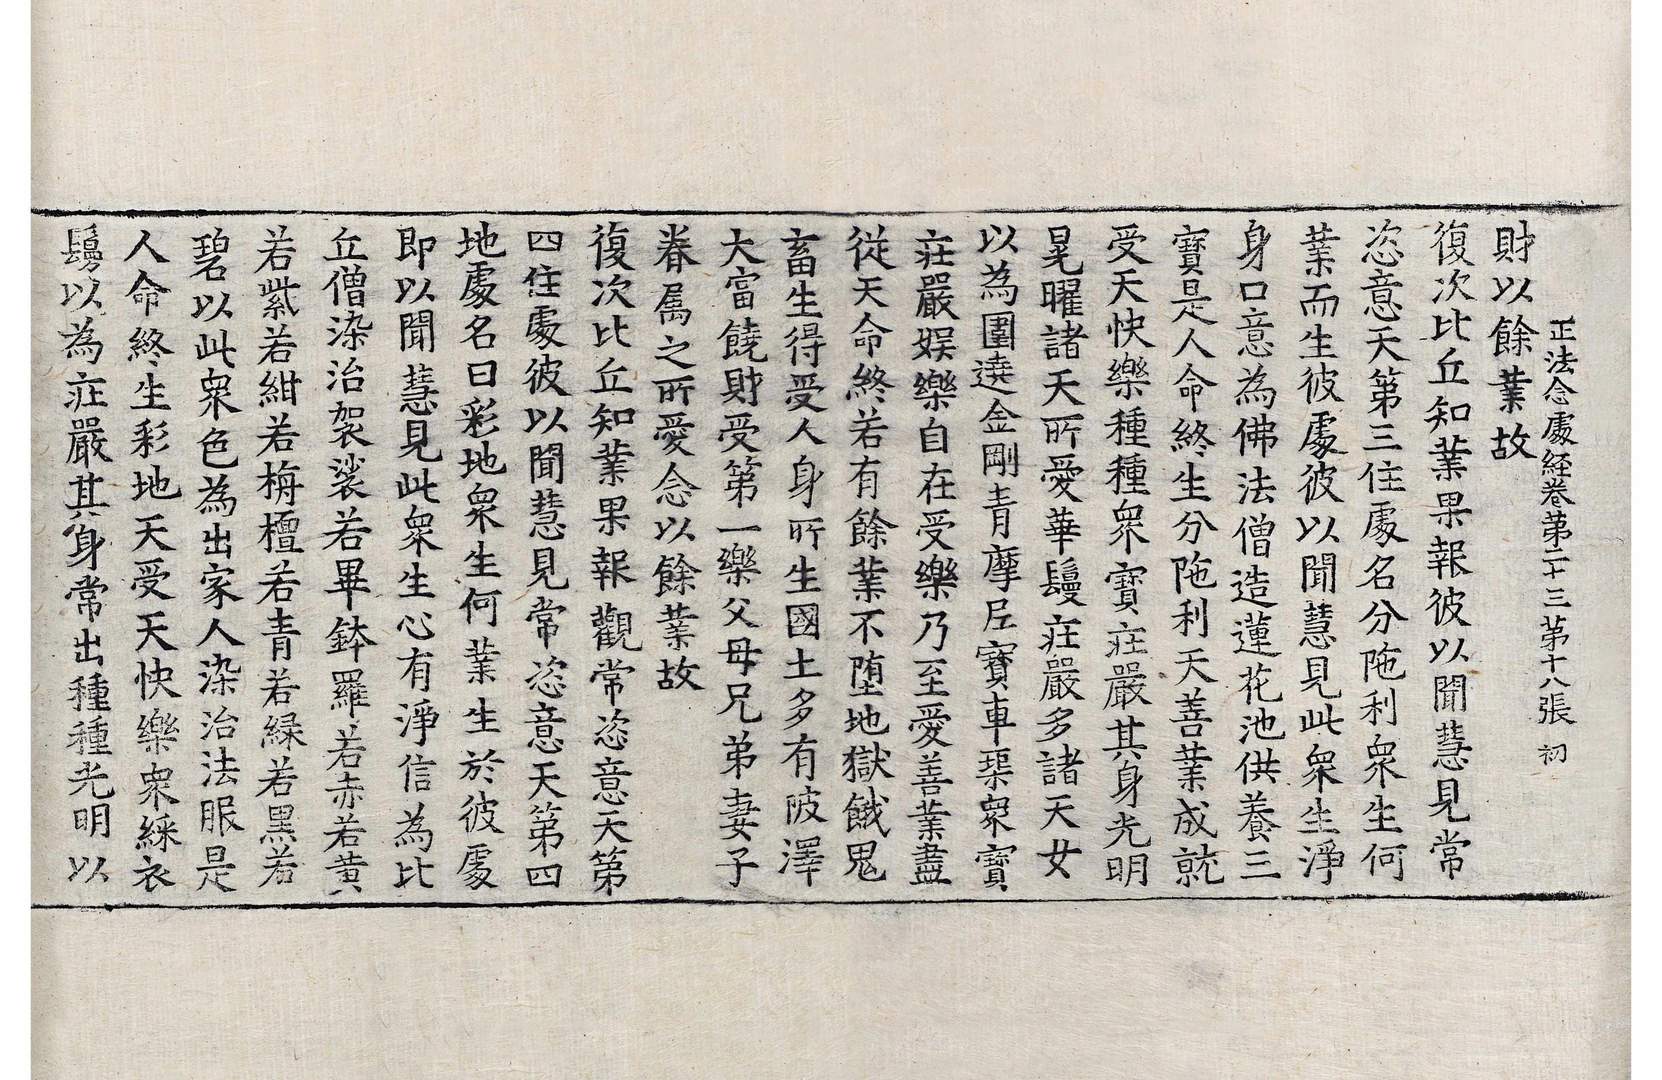 正法念處経卷第二十三第十八張 初
財以餘業故
復次比丘知業果報彼以聞慧見常
恣意天第三住處名分陁利衆生何
業而生彼處彼以聞慧見此衆生淨
身口意為佛法僧造蓮花池供養三
寶是人命終生分陁利天善業成就
受天快樂種種衆寶莊嚴其身光明
晃曜諸天所愛華鬘莊嚴多諸天女
以為圍遶金剛青摩尼寶車璖衆寶
莊嚴娱樂自在受樂乃至愛善業盡
從天命終若有餘業不墮地獄餓鬼
畜生得受人身所生國土多有陂澤
大富饒財受第一樂父母兄弟妻子
眷屬之所愛念以餘業故
復次比丘知業果報觀常恣意天第
四住處彼以聞慧見常恣意天第四
地處名曰彩地衆生何業生於彼處
即以聞慧見此衆生心有淨信為比
丘僧染治袈裟若畢鉢羅若赤若黄
若紫若紺若栴檀若青若緑若黑若
碧以此衆色為出家人染治法服是
人命終生彩地天受天快樂衆綵衣
鬘以為莊嚴其身常出種種光明以